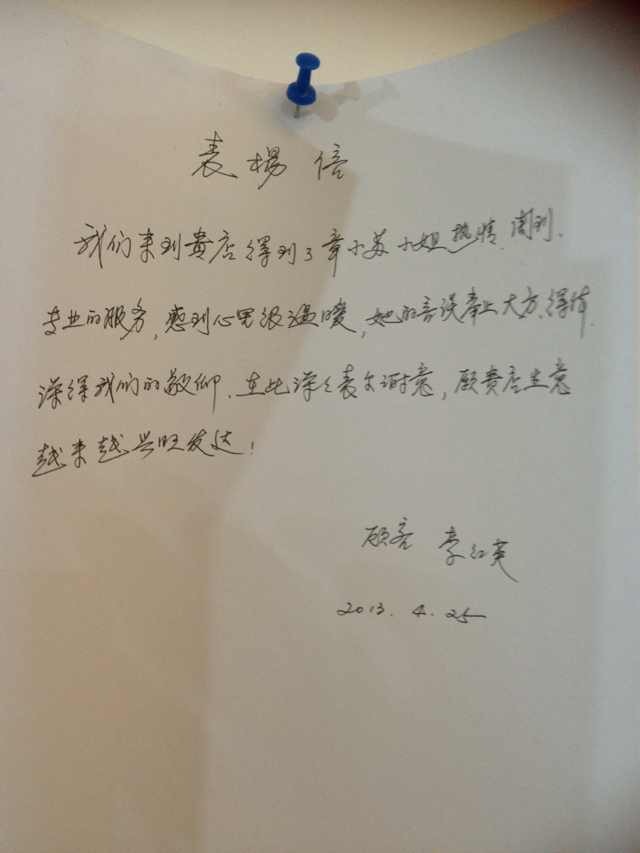 表扬信
我们来到贵店得到了章小苏小姐热情、周到、
专业的服务,感到心里很温暖,她的言谈举止大方、得体,
深得我们的敬仰.在此深深表示谢意,愿贵店生意
越来越兴旺发达!
顾客 李红英
2013.4.25